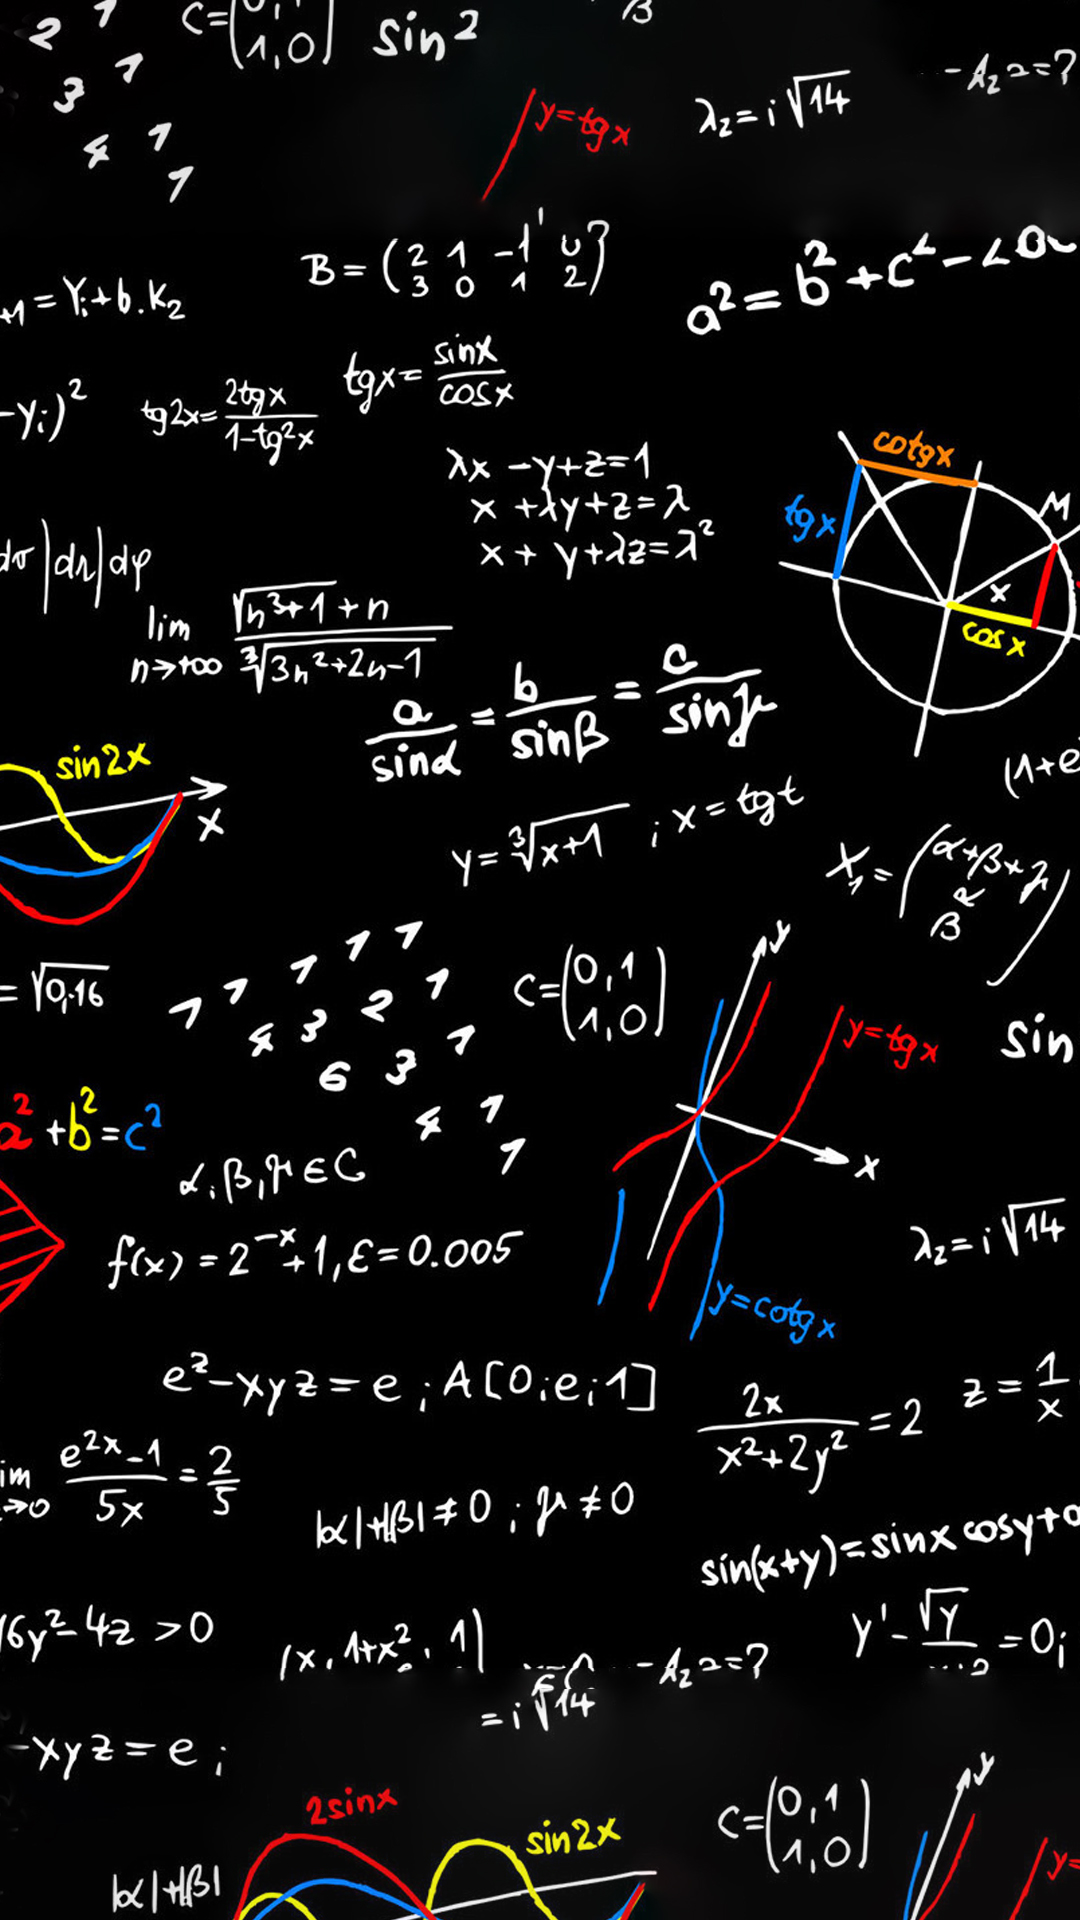 2 1
3 1
4 1
1
C=(0,1
1,0)
sin2
β
y=tgx
λ₂=i√14
-λ₂ 2=?
B=(2 1 -1 0
3 0 1 2)
+1=Yᵢ+b.K₂
a²=b²+c²-2
-Yᵢ)²
tg2x=2tgx/1-tg²x
tgx=sinx/cosx
λx-y+z=1
x+λy+z=λ
x+y+λz=λ²
cotgx
tgx
M
x
cosx
|dr|dφ
lim n→+∞ √n³+1+n/∛3n²+2n-1
a/sinα=b/sinβ=c/sinγ
sin2x
x
(1+e
y=∛x+1 ; x=tgt
X₁=(α+β+γ
β)
=√0,16
1 1 1 1 1
4 3 2 1
6 3 1
4 1
1
C=(0,1
1,0)
y
y=tgx
x
y=cotgx
sin
a²+b²=c²
α,β,γ∈C
f(x)=2⁻ˣ+1,ε=0.005
λ₂=i√14
eᶻ-xyz=e ; A[0;e;1]
2x/x²+2y²=2
z=1/x
im →0 e²ˣ-1/5x=2/5
|α|+|β|≠0 ; γ≠0
sin(x+y)=sinxcosy+
6y²-4z>0
(x,1+x²,1)
-λ₂ 2=?
=i√14
y'-√y
=0;
-xyz=e ;
2sinx
sin2x
C=(0,1
1,0)
y
y=
|α|+|β|